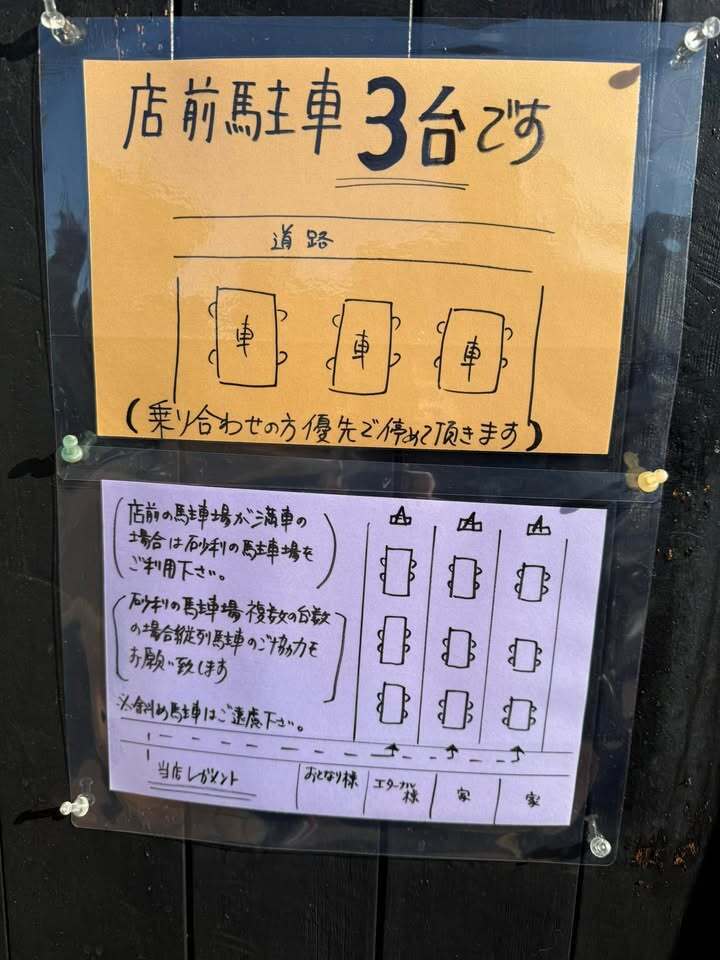 店前駐車3台です
道路
車 車 車
(乗り合わせの方優先で停めて頂きます)
(店前の駐車場が満車の
場合は砂利の駐車場を
ご利用下さい。)
(砂利の駐車場 複数の台数
の場合縦列駐車のご協力を
お願い致します)
※斜め駐車はご遠慮下さい。
当店レガメント
おとなり様
エターナル
様
家
家